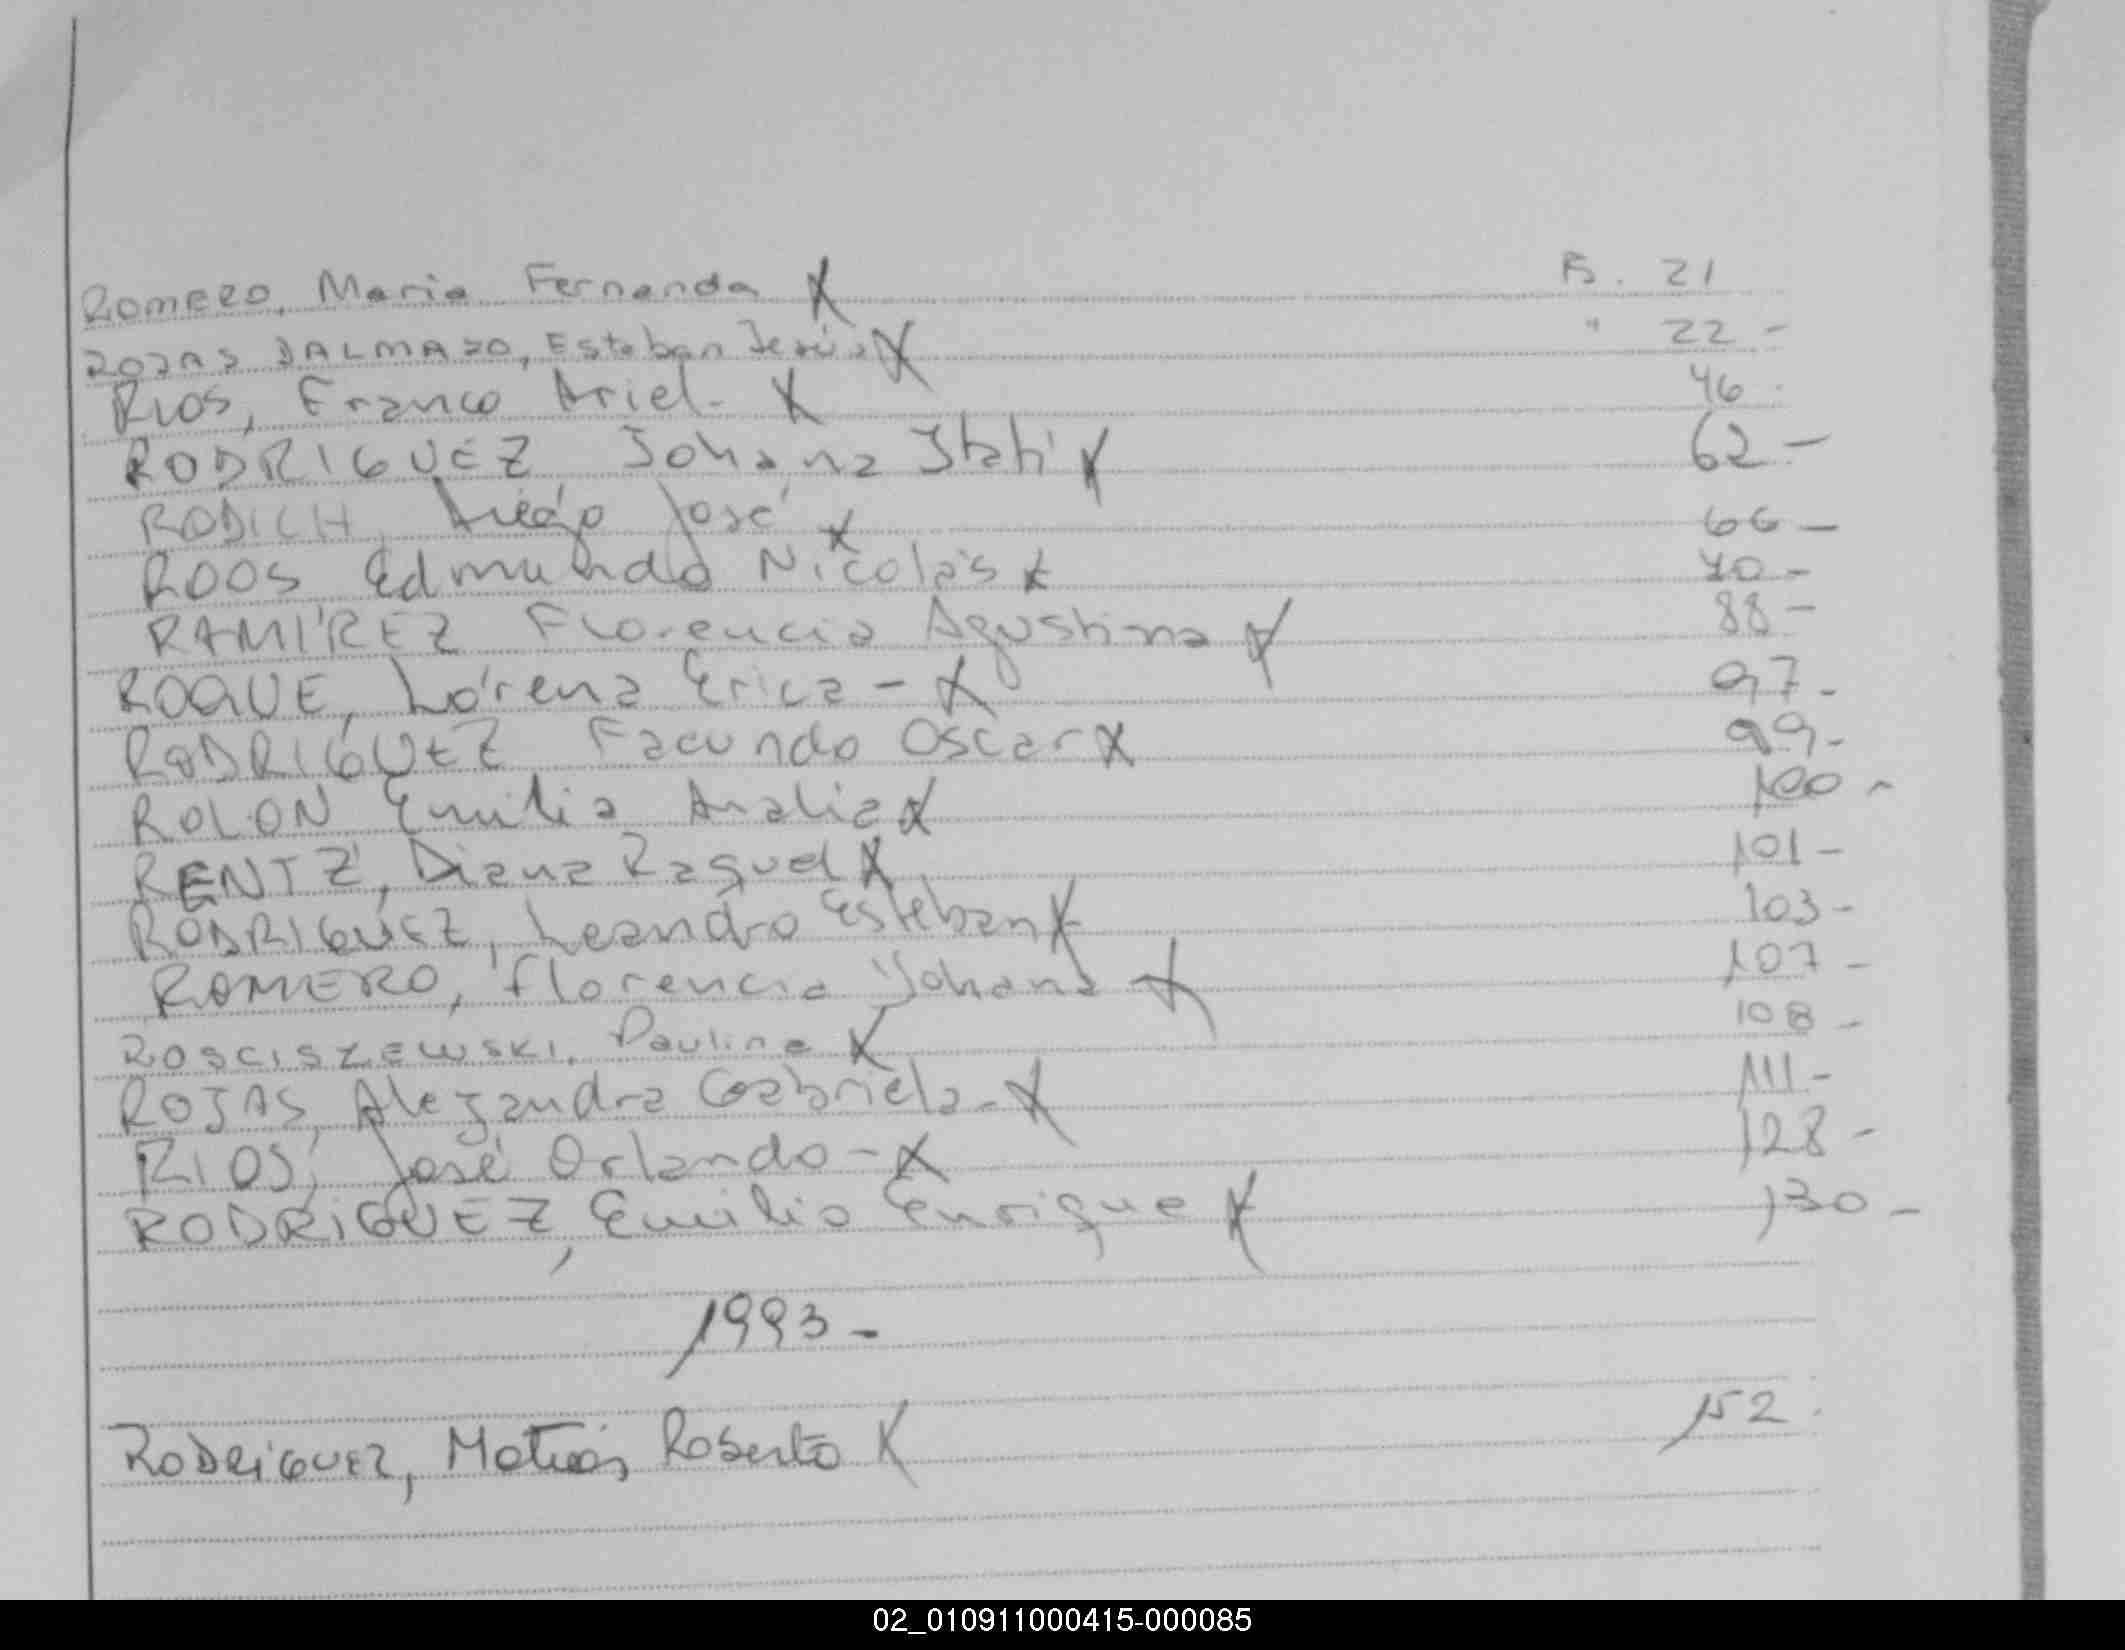 ROMERO, Maria Fernanda X F. 21
ROJAS DALMAZO, Esteban Jesús X " 22 -
RIOS, Franco Ariel - X 46.
RODRIGUEZ Johana Itatí X 62 -
RODICH, Diego José X 66 -
ROOS Edmundo Nicolás X 70 -
RAMÍREZ Florencia Agustina X 88 -
ROQUE, Lorena Erica - X 97 -
RODRIGUEZ Facundo Oscar X 99 -
ROLON Emilia Analia X 100 -
RENTZ, Diana Raquel X 101 -
RODRIGUEZ, Leandro Esteban X 103 -
ROMERO, Florencia Yohana X 107 -
ROSCISZEWSKI, Paulina X 108 -
ROJAS, Alejandra Gabriela - X 111 -
RIOS, José Orlando - X 128 -
RODRIGUEZ, Emilio Enrique X 130 -
1993 -
RODRIGUEZ, Matías Roberto X 152.
02_010911000415-000085